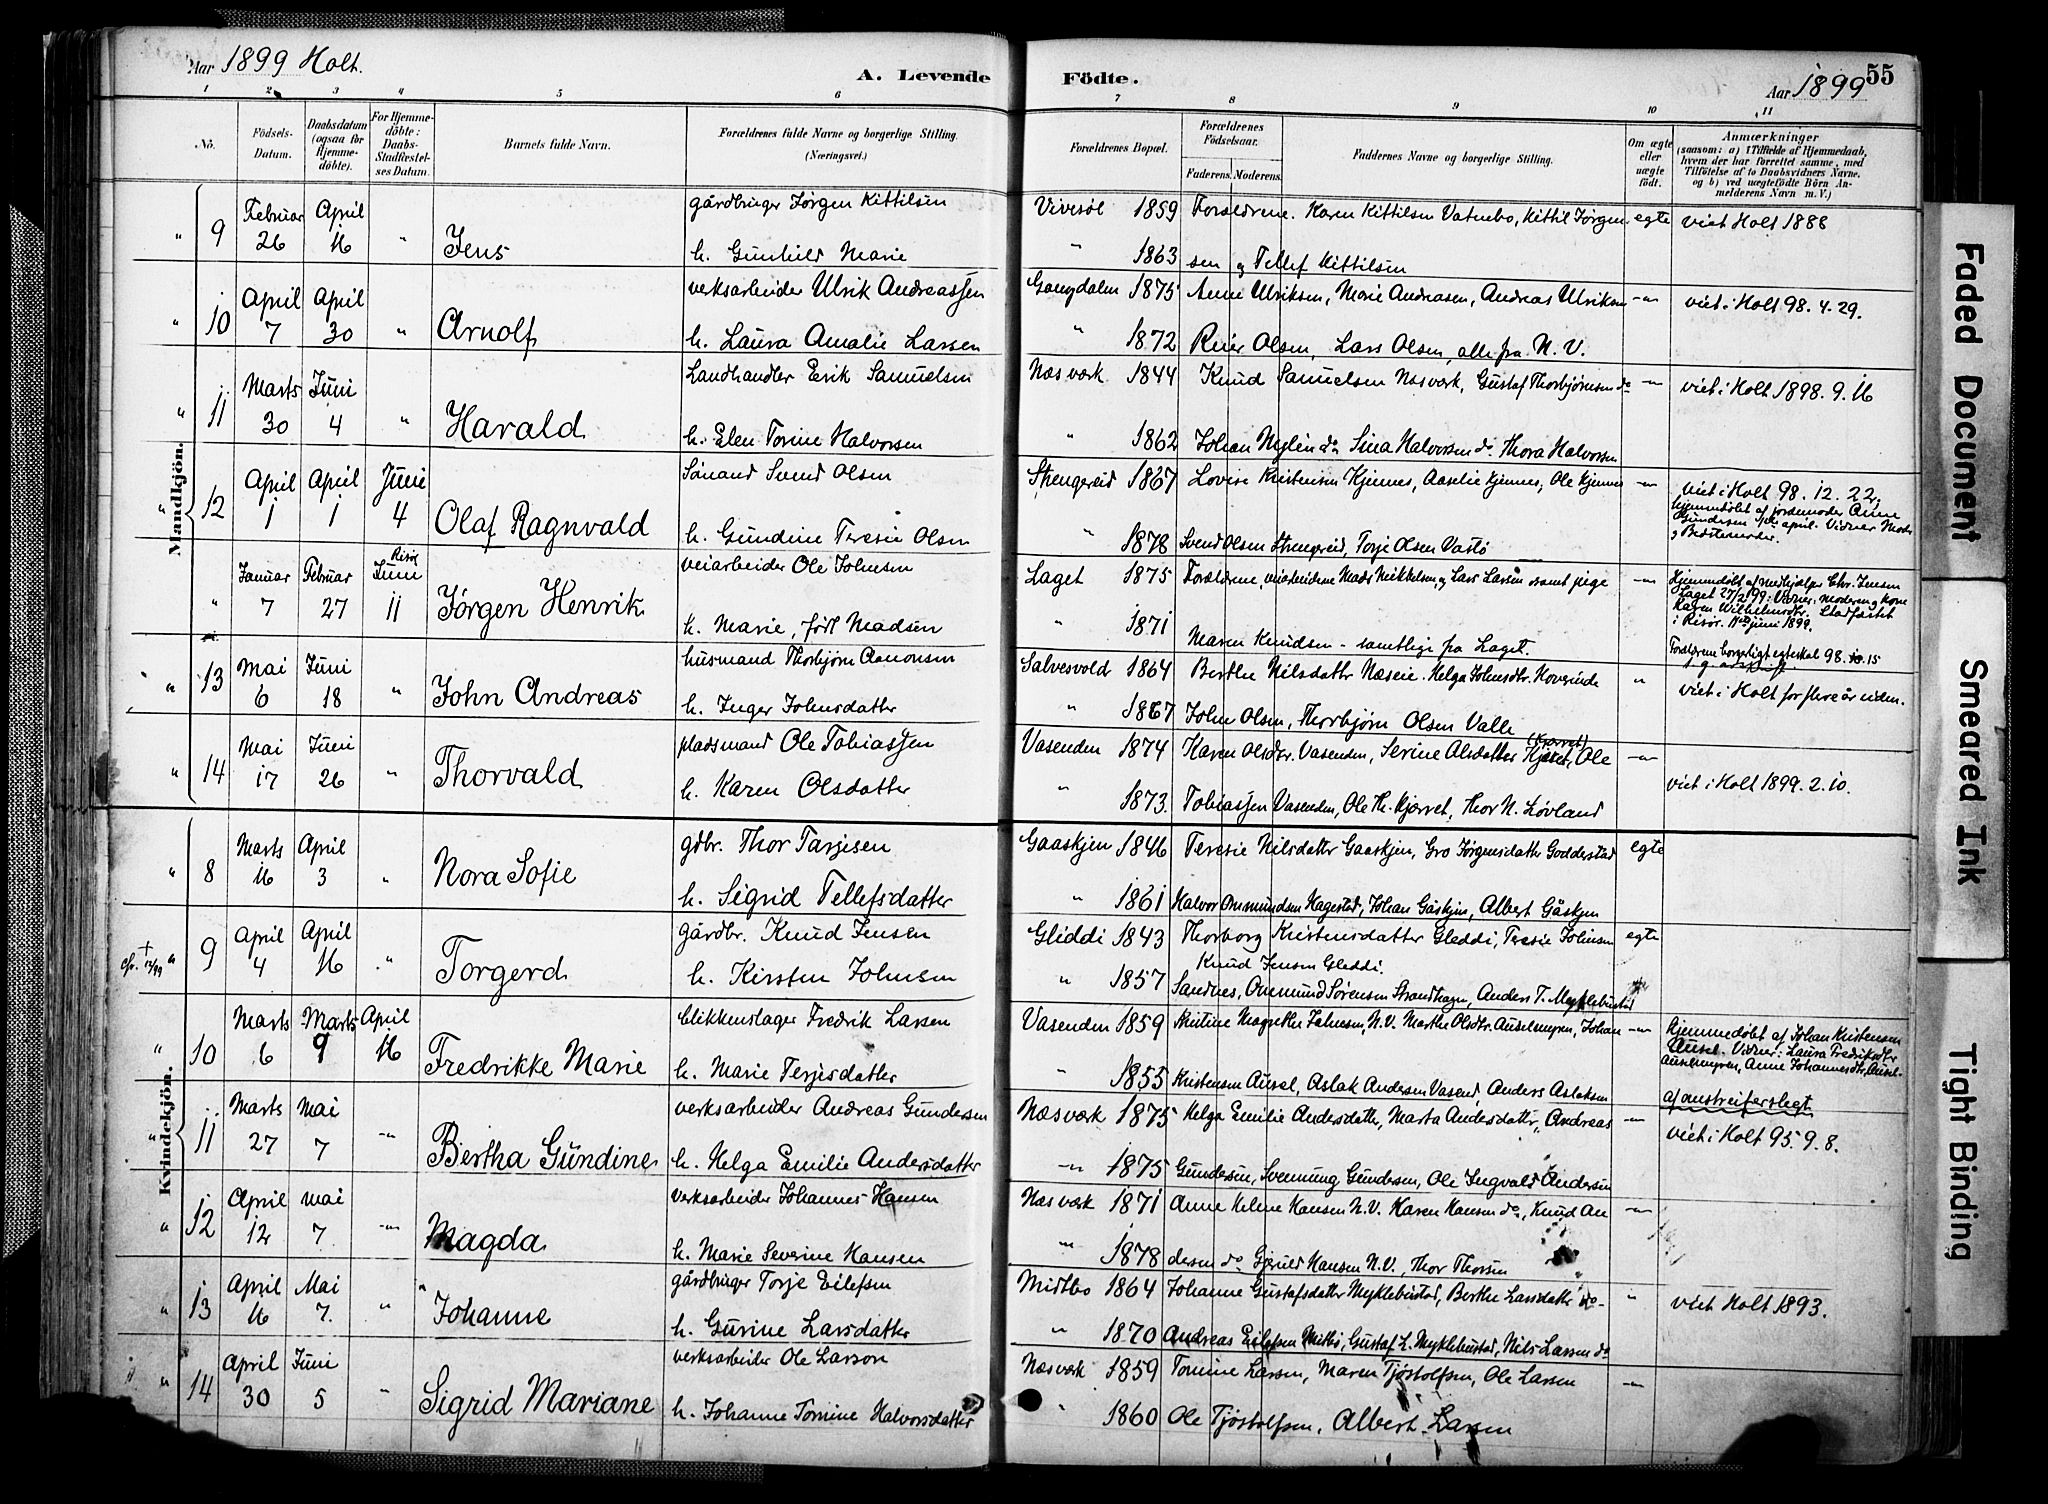 Aar 1899 Holt.
A. Levende Födte.
Aar 1899
55
1 2 3 4 5 6 7 8 9 10 11
No.
Födsels-Datum.
Daabsdatum (ogsaa for Hjemme-döbte).
For Hjemme-döbte: Daabs-Stadfæstel-ses Datum.
Barnets fulde Navn.
Forældrenes fulde Navne og borgerlige Stilling. (Næringsvei.)
Forældrenes Bopæl.
Forældrenes Födselsaar. Faderens. Moderens.
Faddernes Navne og borgerlige Stilling.
Om ægte eller uægte födt.
Anmærkninger (saasom: a) i Tilfælde af Hjemmedaab, hvem der har forrettet samme, med Tilföielse af to Daabsvidners Navne, og b) ved uægtefödte Börn An-melderens Navn m. V.)
Mandkjön.
" 9 Februar 26 April 16 " Jens gårdbruger Jørgen Kittilsen Vivesøl 1859 Forældrene. Karen Kittilsen Vatnebo, Kittil Jørgen- egte viet Holt 1888
h. Gunhild Marie " 1863 sen og Tellef Kittilsen
" 10 April 7 April 30 " Arnolf verksarbeider Ulrik Andreassen Gongdalen 1875 Anne Ulriksen, Marie Andreasen, Andreas Ulriksen -"- viet i Holt 98. 4. 29.
h. Laura Amalie Larsen " 1872 Reier Olsen, Lars Olsen, alle fra N. V.
" 11 Marts 30 Juni 4 " Harald Landhandler Erik Samuelsen Næsværk 1844 Knud Samuelsen Næsværk, Gustaf Thorbjørnsen do -"- viet i Holt 1898. 9. 16
h. Elen Tomine Halvorsen " 1862 Johan Myhlen do Sina Halvorsen do Thora Halvorsen
" 12 April 1 April 1 Juni 4 Olaf Ragnvald Sømand Svend Olsen Strengereid 1867 Lovise Kristensen Kjennes, Aaselie Kjennes, Ole Kjennes -"- viet i Holt 98. 12. 22.
hjemmedøbt af jordemoder Anne Gundersen 1ste april. Vidner Moder og Bedstemoder.
h. Gundine Teresie Olsen " 1878 Svend Olsen Strengereid, Torje Olsen Vastø
" Januar 7 Februar 27 Risør Juni 11 Jørgen Henrik veiarbeider Ole Johnsen Laget 1875 Forældrene, veiarbeiderne Mads Mikkelsen, og Lars Larsen samt pige -"- Hjemmedøbt af medhjælper Chr. Jensen
Laget 27/2 99: Vidner: Moderen og kone Karen Wilhelmsdtr. Stadfæstet i Risør. 11te juni 1899.
h. Marie, født Madsen " 1871 Maren Knudsen - samtlige fra Laget.
Forældrene borgerligt egteskab 98. 10. 15
" 13 Mai 6 Juni 18 " John Andreas husmand Thorbjørn Aanonsen Salvesvold 1864 Berthe Nilsdatter Næseie. Helga Johnsdtr. " viet i Holt for flere år siden.
h. Inger Johnsdatter " 1867 John Olsen, Thorbjørn Olsen Valle
" 14 Mai 17 Juni 26 " Thorvald pladsmand Ole Tobiassen Vasenden 1874 Karen Olsdtr. Vasenden, Serine Olsdatter (Kjørvet), Ole -"- viet i Holt 1899. 2. 10.
h. Karen Olsdatter " 1873. Tobiassen Vasenden, Ole Th. Kjørvet, Thor N. Løvland
Kvindekjön.
" 8 Marts 16 April 3 " Nora Sofie gdbr. Thor Tarjesen Gaaskjen 1846 Teresie Nilsdatter Gaaskjen, Gro Jørgensdatter Godderstad egte
h. Sigrid Tellefsdatter " 1861 Halvor Omundsen Hagestad, Johan Gåskjen, Albert Gåskjen
† 12/99 " 9 April 4 April 16 " Torgerd gårdbr. Knud Jensen Gliddi 1843 Thorborg Kristensdatter Gleddi, Teresie Johnsen egte
Knud Jensen Gleddi.
h. Kirsten Johnsen " 1857 Sandnes, Omsmund Sørensen Strandhagen, Anders T. Myklebustad
" 10 Marts 6 Marts 9 April 16 Fredrikke Marie blikkenslager Fredrik Larsen Vasenden 1859 Kristine Magrethe Johnsen, N.V. Marthe Olsdtr. Auselmyren, Johan -"- hjemmedøbt af Johan Kristensen
Ausel. Vidner: Laura Fredriksdtr Auselmyren, Anne Johannesdtr, Ausel.
h. Marie Terjesdatter " 1855 Kristensen Ausel, Aslak Andersen Vasend, Anders Aslaksen
af omstreiferslegt
" 11 Marts 27 Mai 7 -"- Bertha Gundine verksarbeider Andreas Gundersen Næsværk 1875 Helga Emilie Andersdatter, Marta Andersdatter, Andreas -"- viet i Holt 95. 9. 8.
h. Helga Emilie Andersdatter -"- 1875 Gundersen, Svennung Gundersen, Ole Ingvald Andersen
" 12 April 12 Mai 7 -"- Magda verksarbeider Johannes Hansen Næsværk 1871 Anne Helene Hansen N.V. Karen Hansen do, Knud An -"-
h. Marie Severine Hansen -"- 1878 dersen do Hansen N.V., Thor Thorsen
" 13 April 16 Mai 7. " Johanne gårdbruger Torje Eilefsen Midtbo 1864 Johanne Gustafsdatter Myklebustad, Berthe Larsdatter do- " viet Holt 1893.
h. Gurine Larsdatter " 1870 Andreas Eilefsen Midtbø, Gustaf L. Myklebustad, Nils Larsen do
" 14 April 30 Juni 5 " Sigrid Mariane verksarbeider Ole Larson Næsværk 1859 Tomine Larsen, Maren Tjøstolfsen, Ole Larsen -"-
h. Johanne Tomine Halvorsdatter " 1860 Ole Tjøstolfsen, Albert Larsen
Faded Document
Smeared Ink
Tight Binding